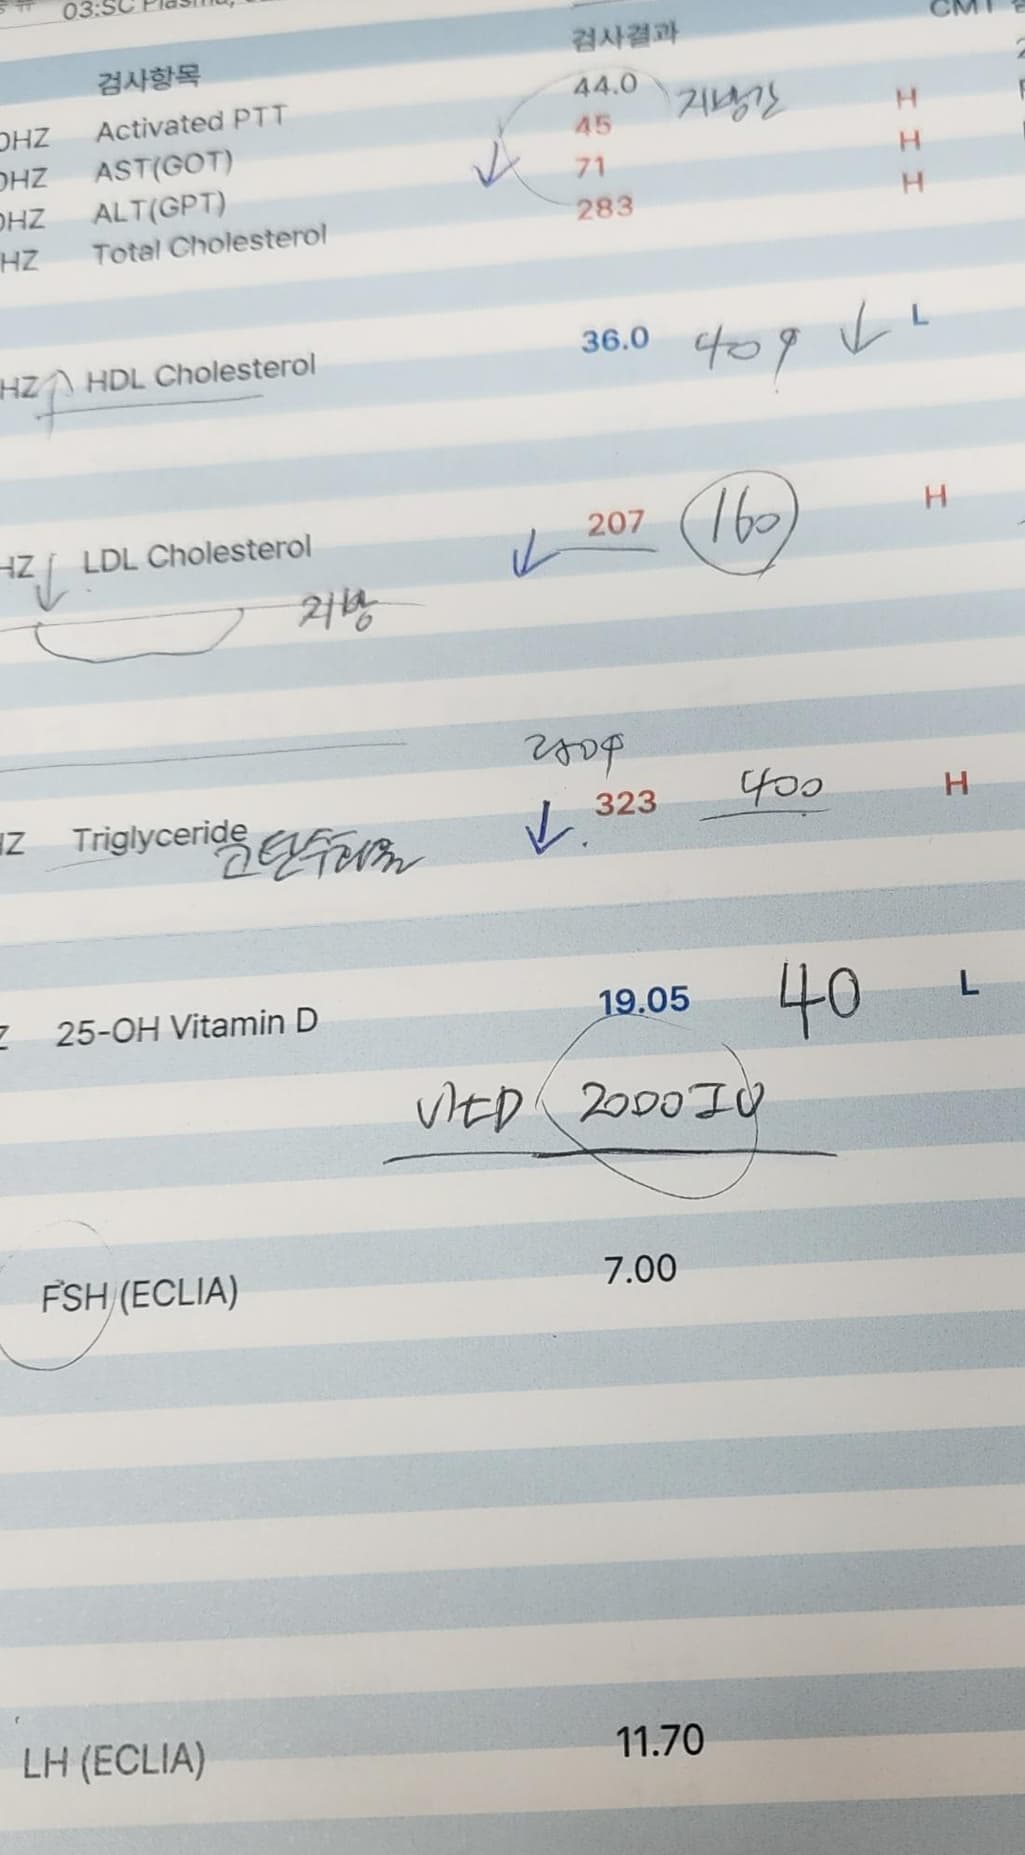 03:SC Plasma,
검사항목 검사결과 CMT
0HZ Activated PTT 44.0 지방간 H
0HZ AST(GOT) 45 H
0HZ ALT(GPT) 71 H
HZ Total Cholesterol 283
HZ HDL Cholesterol 36.0 40 L
HZ LDL Cholesterol 207 160 H
지방
HZ Triglyceride 323 400 H
고탄수화물
25-OH Vitamin D 19.05 40 L
비타D 2000IU
FSH (ECLIA) 7.00
LH (ECLIA) 11.70